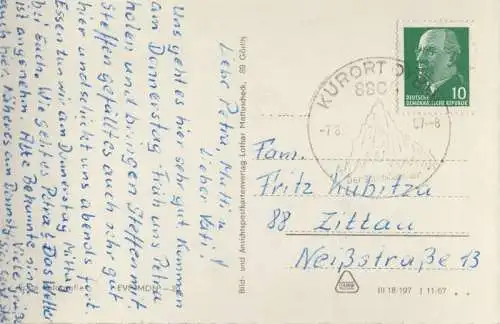 Liebe Petra, Mutti u.
lieber Kati!
Uns geht es hier sehr gut. Kommen
am Donnerstag früh uns Petra
holen und bringen Steffen mit.
Steffen gefällt es auch sehr gut
hier und schickt uns abends fort.
Essen tun wir am Donnerstag Mittag
bei euch. Wie geht es Petra? Das Wetter
ist angenehm. Alte Bekannte sind
auch hier. Näheres am Donnerstag. Viele
Bild- und Ansichtspostkartenverlag Lothar Mattuscheck, 89 Görlitz
KURORT
880
-7.8
67-8
DEUTSCHE
DEMOKRATISCHE REPUBLIK
10
Fam.
Fritz Kubitza
88 Zittau
Neißstraße 13
III 18 197 J 11/67